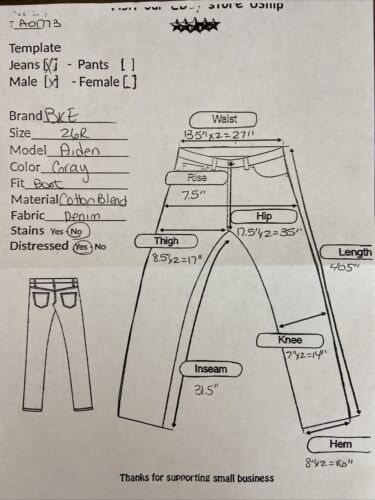 Visit our Ebay store Gship
TA01773
Template
Jeans [X] - Pants [ ]
Male [X] - Female [ ]
Brand BKE
Size 26R
Model Aiden
Color Gray
Fit Boot
Material Cotton Blend
Fabric Denim
Stains Yes - No
Distressed Yes - No
Waist
13.5"x2=27"
Rise
7.5"
Hip
17.5"x2=35"
Thigh
8.5"x2=17"
Length
40.5"
Knee
7"x2=14"
Inseam
31.5"
Hem
8"x2=16"
Thanks for supporting small business